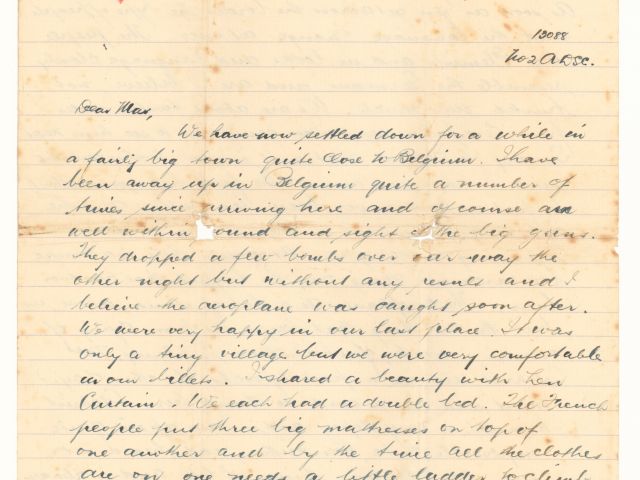 13088
No 2 A.D.S.C.
Dear Max,
We have now settled down for a while in
a fairly big town quite close to Belgium. I have
been away up in Belgium quite a number of
times since arriving here and of course am
well within ound and sight o the big guns.
They dropped a few bombs over our way the
other night but without any result and I
believe the aeroplane was caught soon after.
We were very happy in our last place. It was
only a tiny village but we were very comfortable
in our billets. I shared a beauty with Len
Curtain. We each had a double bed. The French
people put three big mattresses on top of
one another and by the time all the clothes
are on one needs a little ladder to climb